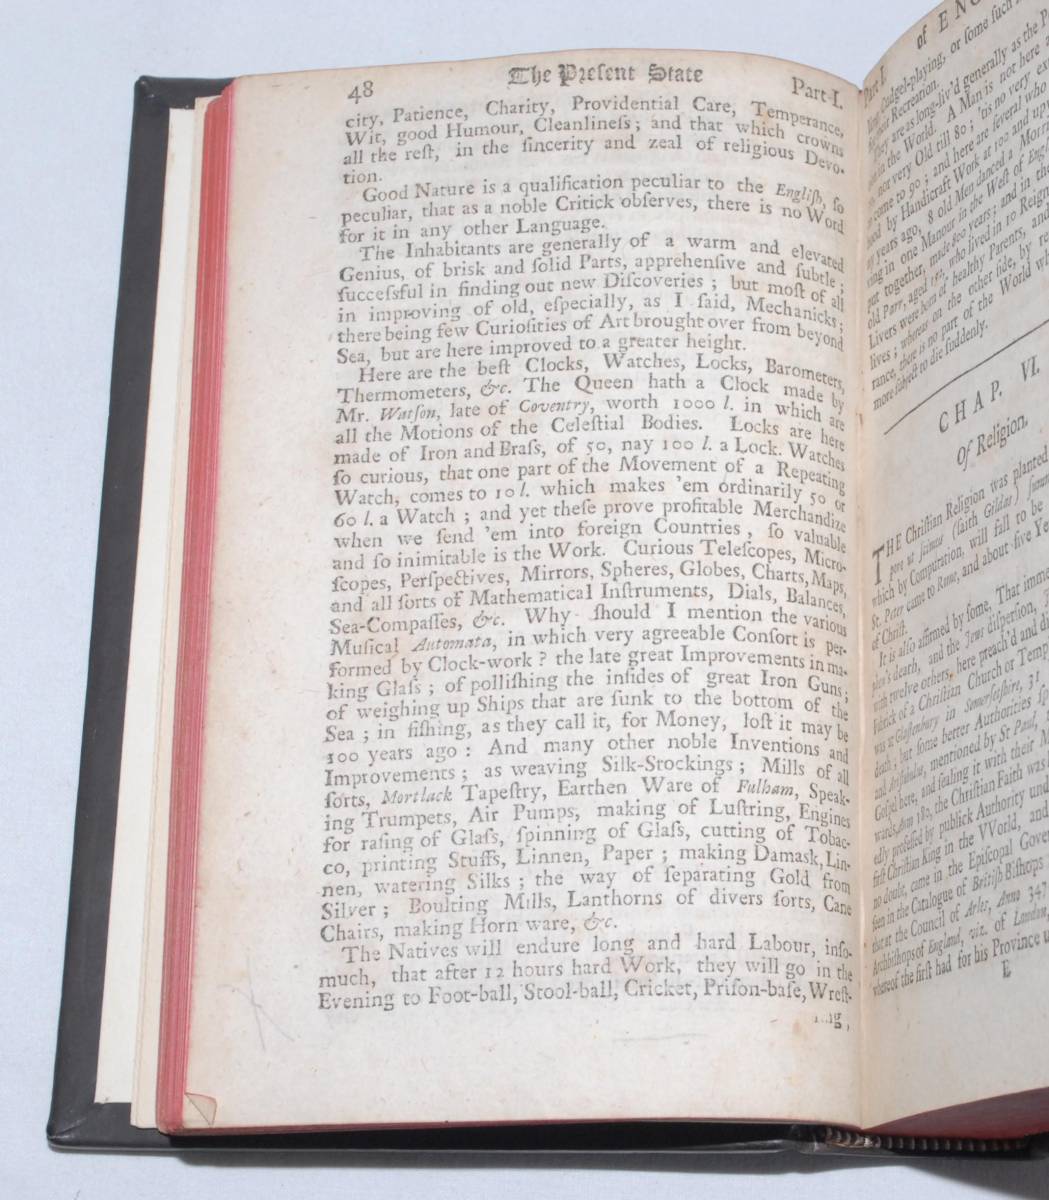 48 The Preſent State Part I.
city, Patience, Charity, Providential Care, Temperance,
Wit, good Humour, Cleanlineſs; and that which crowns
all the reſt, in the ſincerity and zeal of religious Devo-
tion.
Good Nature is a qualification peculiar to the Engliſh, ſo
peculiar, that as a noble Critick obſerves, there is no Word
for it in any other Language.
The Inhabitants are generally of a warm and elevated
Genius, of brisk and ſolid Parts, apprehenſive and ſubtle;
ſucceſsful in finding out new Diſcoveries; but moſt of all
in improving of old, eſpecially, as I ſaid, Mechanicks;
there being few Curioſities of Art brought over from beyond
Sea, but are here improved to a greater height.
Here are the beſt Clocks, Watches, Locks, Barometers,
Thermometers, &c. The Queen hath a Clock made by
Mr. Watſon, late of Coventry, worth 1000 l. in which are
all the Motions of the Celeſtial Bodies. Locks are here
made of Iron and Braſs, of 50, nay 100 l. a Lock. Watches
ſo curious, that one part of the Movement of a Repeating
Watch, comes to 10 l. which makes 'em ordinarily 50 or
60 l. a Watch; and yet theſe prove profitable Merchandize
when we ſend 'em into foreign Countries, ſo valuable
and ſo inimitable is the Work. Curious Teleſcopes, Micro-
ſcopes, Perſpectives, Mirrors, Spheres, Globes, Charts, Maps,
and all ſorts of Mathematical Inſtruments, Dials, Balances,
Sea-Compaſſes, &c. Why ſhould I mention the various
Muſical Automata, in which very agreeable Conſort is per-
formed by Clock-work? the late great Improvements in ma-
king Glaſs; of polliſhing the inſides of great Iron Guns;
of weighing up Ships that are ſunk to the bottom of the
Sea; in fiſhing, as they call it, for Money, loſt it may be
100 years ago: And many other noble Inventions and
Improvements; as weaving Silk-Stockings; Mills of all
ſorts, Mortlack Tapeſtry, Earthen Ware of Fulham, Speak-
ing Trumpets, Air Pumps, making of Luſtring, Engines
for raſing of Glaſs, ſpinning of Glaſs, cutting of Tobac-
co, printing Stuffs, Linnen, Paper; making Damask, Lin-
nen, watering Silks; the way of ſeparating Gold from
Silver; Boulting Mills, Lanthorns of divers ſorts, Cane
Chairs, making Horn ware, &c.
The Natives will endure long and hard Labour, inſo-
much, that after 12 hours hard Work, they will go in the
Evening to Foot-ball, Stool-ball, Cricket, Priſon-baſe, Wreſt-
ing,
Part I. of ENG
Cudgel-playing, or ſome ſuch
Recreation.
They are as long-liv'd generally as the
in the World. A Man is not here
not very Old till 80; 'tis no very
come to 90; and here are ſeveral who
by Handicraft Work at 100 and
years ago, 8 old Men danced a
in one Manour in the Weſt of
put together, made 800 years; and in the
old Parr, aged 152, who lived in 10
Livers were born of healthy Parents, and
lives; whereas on the other ſide, by
rance, there is no part of the World
more ſubject to die ſuddenly.
CHAP. VI.
Of Religion.
THE Chriſtian Religion was planted
(ſaith Gildas)
which by Computation, will fall to be
St. Peter came to Rome, and about five
of Chriſt.
It is alſo affirmed by ſome, That
death, and the Jews diſperſion,
with twelve others, here preach'd and
Fabrick of a Chriſtian Church or
was at Glaſtenbury in Somerſetſhire, 31
death; but ſome better Authorities
and Ariſtobulus, mentioned by St Paul,
Goſpel here, and ſealing it with their
wards, Anno 180, the Chriſtian Faith was
edly profeſſed by publick Authority
firſt Chriſtian King in the VVorld, and
no doubt, came in the Epiſcopal
ſeen in the Catalogue of Britiſh Biſhops
that at the Council of Arles, Anno 347
Archbiſhops of England, viz. of London,
whereof the firſt had for his Province
E